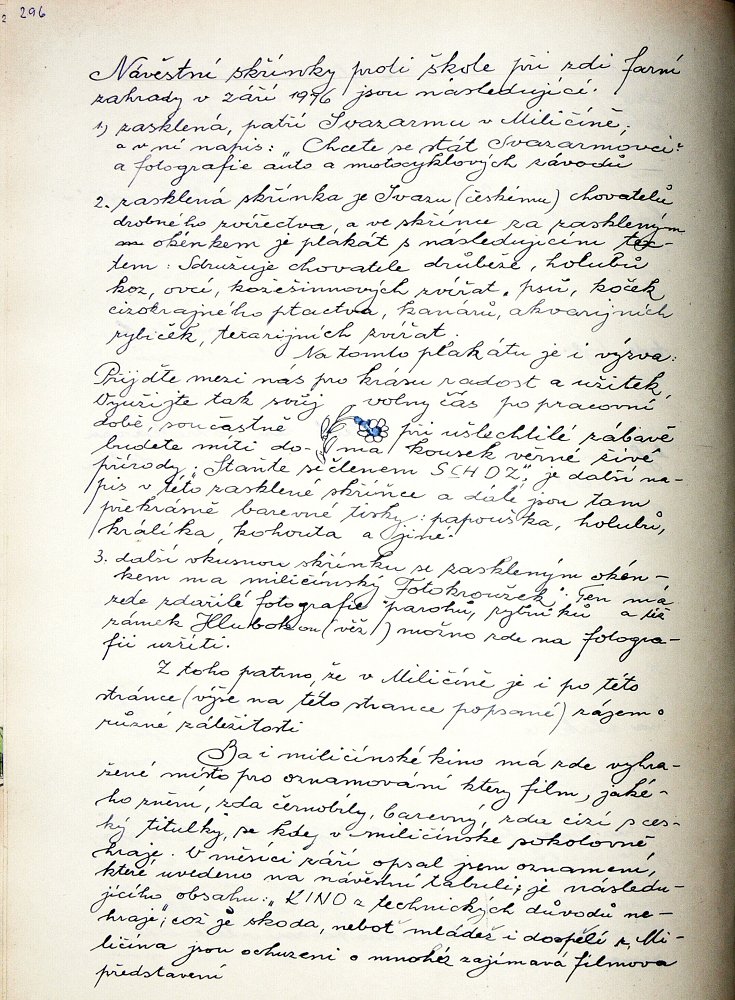 296
Návěstní skřínky proti škole při zdi farní
zahrady v září 1976 jsou následující.
1) zasklená, patří Svazarmu v Miličíně;
a v ní napis: „Chcete se stát Svazarmovci?
a fotografie auto a motocyklových závodů
2. zasklená skřínka je Svazu (českému) chovatelů
drobného zvířectva, a ve skřínce za zaskleným
okénkem je plakát s následujícím tex-
tem: Sdružuje chovatele drůbeže, holubů
koz, ovcí, kožešinnových zvířat, psů, koček
cizokrajného ptactva, kanárů, akvarijních
rybiček, terarijních zvířat.
Na tomto plakátu je i výzva:
Přijďte mezi nás pro krásu radost a užitek,
Využijte tak svůj volný čas po pracovní
době, součastně při ušlechtilé zábavě
budete míti do- ma kousek věrné živé
přírody; Staňte se členem SCHDZ", je další ná-
pis v této zasklené skříňce a dále jsou tam
překrásné barevné tisky: papouška, holubů,
králíka, kohouta a jiné.
3. další vkusnou skřínku se zaskleným okén-
kem má miličínský „Fotokroužek". Ten má
zde zdařilé fotografie parohů, rybníků a též
zámek Hlubokou (věž) možno zde na fotogra-
fii uzříti.
Z toho patrno, že v Miličíně je i po této
stránce (výše na této strance popsané) zájem o
různé záležitosti
Ba i miličínské kino má zde vyhra-
žené místo pro oznamování ktery film, jaké-
ho znění, zda černobílý, barevný, zda cizí s čes-
ký titulky, se kdy v miličínske sokolovně
hraje. V měsíci září opsal jsem oznamení,
které uvedeno na návěstní tabuli; je následu-
jícího obsahu: „KINO z technických důvodů ne-
hraje"; což je skoda, neboť mládež i dospělí z Mi-
ličína jsou ochuzeni o mnohéz zajímavá filmova
představení